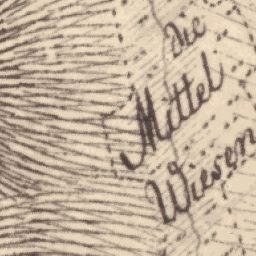 die
Mittel
Wiesen